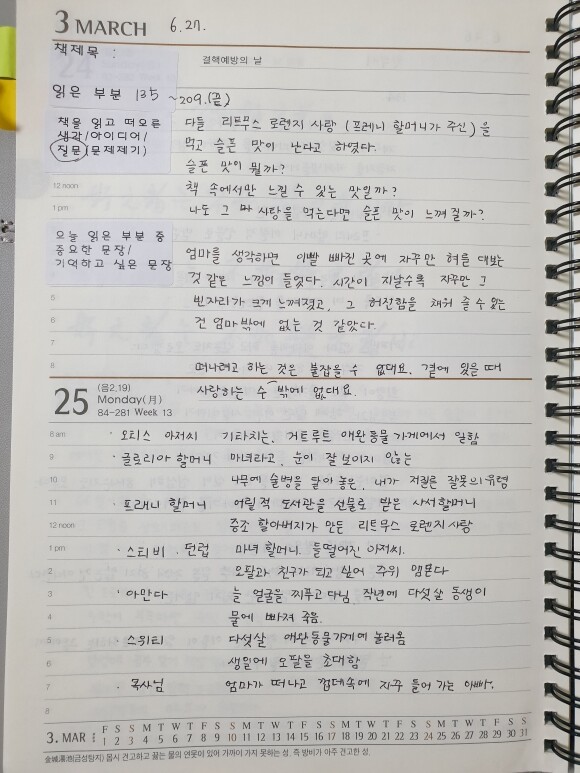 3 MARCH 6.27.
책제목 :
결핵예방의 날
읽은 부분 135 ~209.(끝)
책을 읽고 떠오른
생각/아이디어/
질문(문제제기)
다들 리트무스 로렌지 사탕 (프레니 할머니가 주신)을
먹고 슬픈 맛이 난다고 하였다.
슬픈 맛이 뭘까?
12 noon
책 속에서만 느낄 수 있는 맛일까?
1 pm
나도 그 사탕을 먹는다면 슬픈 맛이 느껴 질까?
오늘 읽은 부분 중
중요한 문장/
기억하고 싶은 문장
엄마를 생각하면 이빨 빠진 곳에 자꾸만 혀를 대보는
것 같은 느낌이 들었다. 시간이 지날수록 자꾸만 그
5
빈자리가 크게 느껴졌고, 그 허전함을 채워 줄 수 있는
6
건 엄마밖에 없는 것 같았다.
7
8
떠나려고 하는 것은 붙잡을 수 없대요. 곁에 있을 때
사랑하는 수 밖에 없대요.
25 (음2.19)
Monday(月)
84-281 Week 13
8 am · 오티스 아저씨 기타치는, 거트루트 애완동물 가게에서 일함
9 · 글로리아 할머니 마녀라고, 눈이 잘 보이지 않는
10 나무에 술병을 달아 놓은, 내가 저질른 잘못의 유령
11 · 프래니 할머니 어릴적 도서관을 선물로 받은 사서할머니
12 noon 증조 할아버지가 만든 리트무스 로렌지 사탕
1 pm · 스티비 . 던럽 마녀 할머니. 들떨어진 아저씨.
2 오팔과 친구가 되고 싶어 주위 맴돈다
3 · 아만다 늘 얼굴을 찌푸고 다님. 작년에 다섯살 동생이
4 물에 빠져 죽음.
5 · 스위티 다섯살 애완동물가게에 놀러옴
6 생일에 오팔을 초대함
7 · 목사님 엄마가 떠나고 껍데속에 자꾸 들어 가는 아빠.
8
3. MAR F S S M T W T F S S M T W T F S S M T W T F S S M T W T F S S
1 2 3 4 5 6 7 8 9 10 11 12 13 14 15 16 17 18 19 20 21 22 23 24 25 26 27 28 29 30 31
金城湯池(금성탕지) 몹시 견고하고 끓는 물의 연못이 있어 가까이 가지 못하는 성. 즉 방비가 아주 견고한 성.